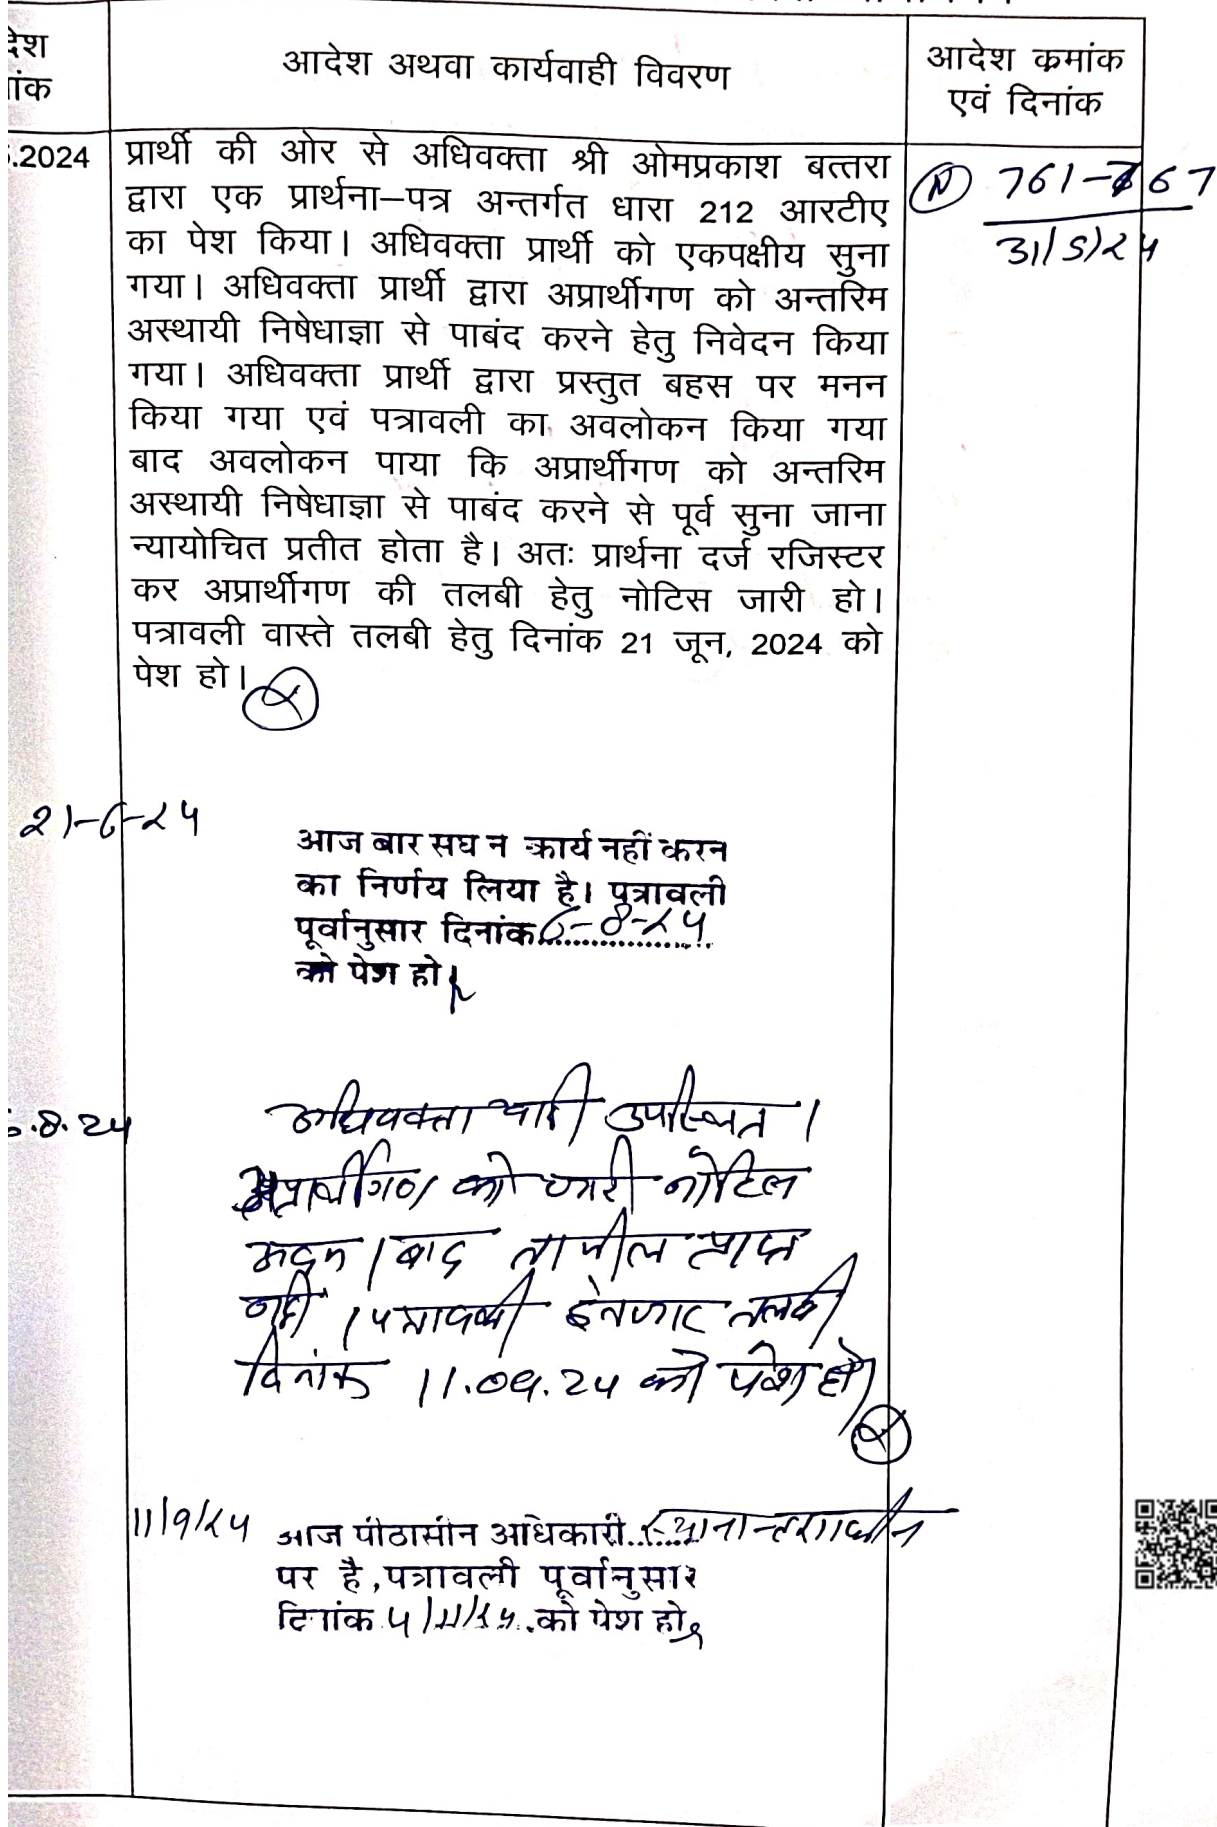 देश
ांक
आदेश अथवा कार्यवाही विवरण
आदेश कमांक
एवं दिनांक
.2024
प्रार्थी की ओर से अधिवक्ता श्री ओमप्रकाश बत्तरा
द्वारा एक प्रार्थना–पत्र अन्तर्गत धारा 212 आरटीए
का पेश किया। अधिवक्ता प्रार्थी को एकपक्षीय सुना
गया। अधिवक्ता प्रार्थी द्वारा अप्रार्थीगण को अन्तरिम
अस्थायी निषेधाज्ञा से पाबंद करने हेतु निवेदन किया
गया। अधिवक्ता प्रार्थी द्वारा प्रस्तुत बहस पर मनन
किया गया एवं पत्रावली का अवलोकन किया गया
बाद अवलोकन पाया कि अप्रार्थीगण को अन्तरिम
अस्थायी निषेधाज्ञा से पाबंद करने से पूर्व सुना जाना
न्यायोचित प्रतीत होता है। अतः प्रार्थना दर्ज रजिस्टर
कर अप्रार्थीगण की तलबी हेतु नोटिस जारी हो।
पत्रावली वास्ते तलबी हेतु दिनांक 21 जून, 2024 को
पेश हो।
N 761-767
31/5/24
21-6-24
आज बार सघ न कार्य नहीं करन
का निर्णय लिया है। पत्रावली
पूर्वानुसार दिनांक 6-8-24
को पेश हो।
.8.24
अधिवक्ता प्रार्थी उपस्थित।
अप्रार्थीगण को जारी नोटिस
अदम। बाद तामील प्राप्त
नहीं। पत्रावली इंतजार तलबी
दिनांक 11.09.24 को पेश हो।
11/9/24
आज पीठासीन अधिकारी स्थानान्तरणाधीन
पर है, पत्रावली पूर्वानुसार
दिनांक 4/11/24 को पेश हो